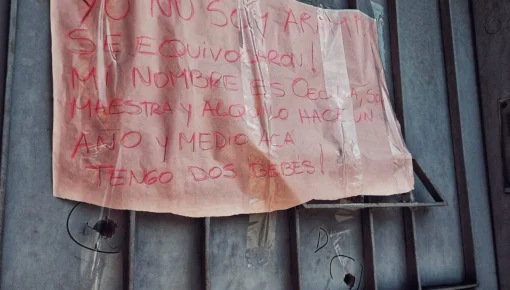 YO NO SOY
SE EQUIVOCARON!
MI NOMBRE ES CECILIA, SOY
MAESTRA Y ALQUILO HACE UN
AÑO Y MEDIO ACA
TENGO DOS BEBES!
D